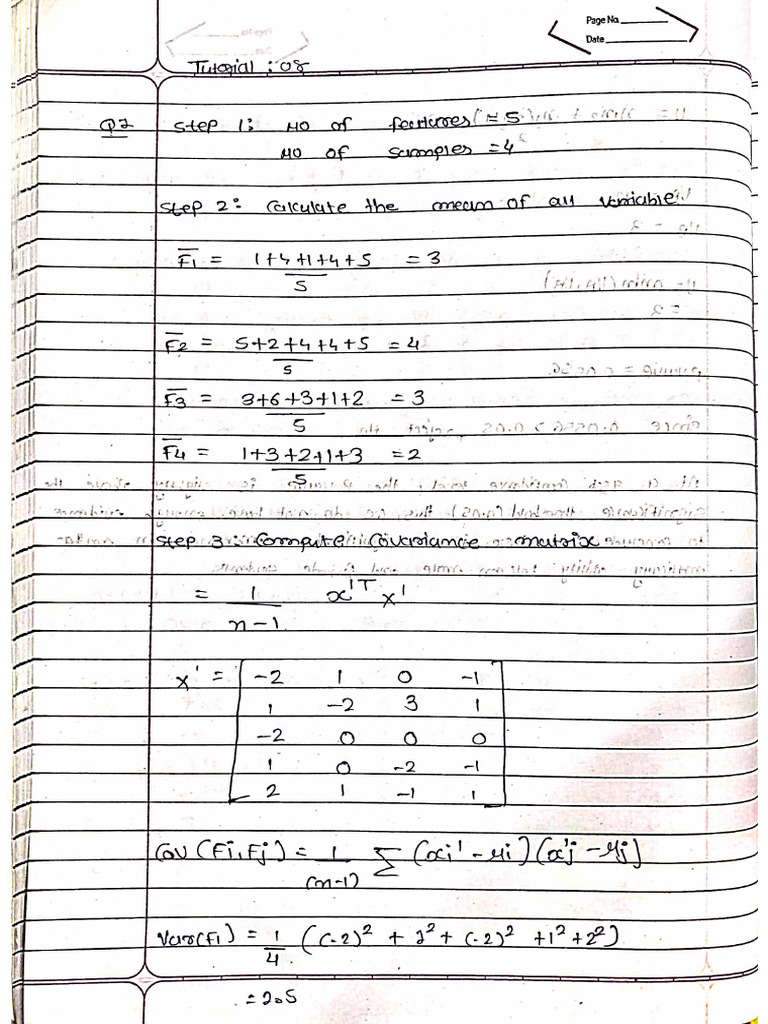 Page No.
Date
Tutorial : 08
Q7 Step 1: No of features = 5
No of samples = 4
Step 2: Calculate the mean of all variable
F̅1 = 1+4+1+4+5 / 5 = 3
F̅2 = 5+2+4+4+5 / 5 = 4
F̅3 = 3+6+3+1+2 / 5 = 3
F̅4 = 1+3+2+1+3 / 5 = 2
Step 3: Compute Covariance matrix
= 1 / n-1 x'ᵀ x'
x' = [ -2 1 0 -1
1 -2 3 1
-2 0 0 0
1 0 -2 -1
2 1 -1 1 ]
Cov (Fi, Fj) = 1 / (n-1) Σ (xi' - μi) (x'j - μj)
Var(F1) = 1/4 ((-2)² + 1² + (-2)² + 1² + 2²)
= 2.5